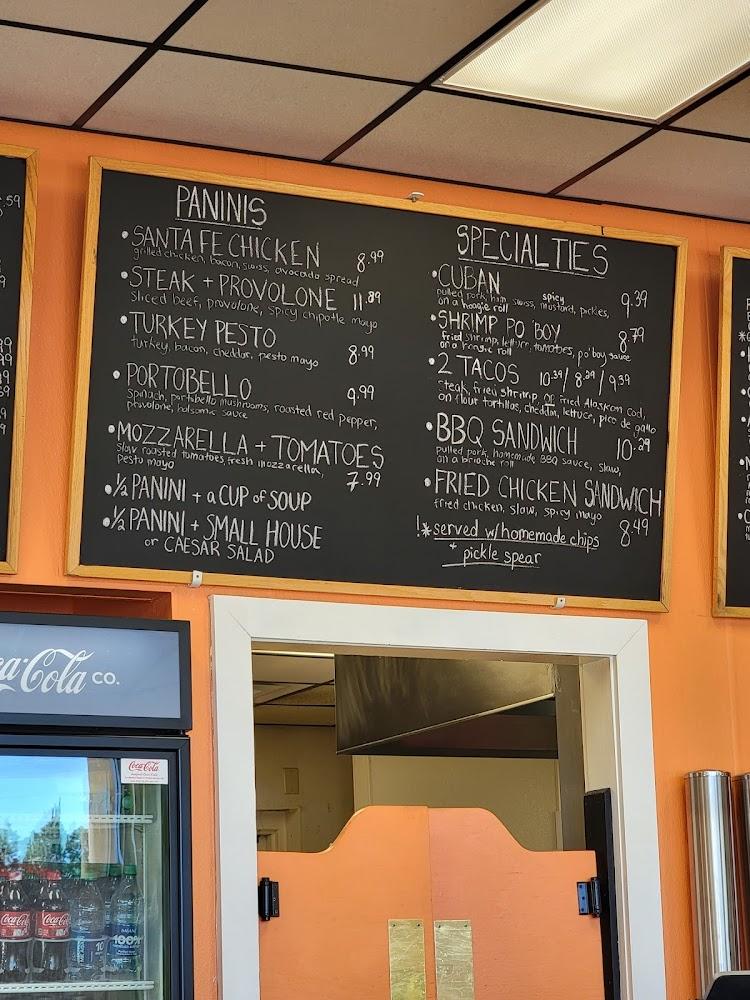 PANINIS
• SANTA FE CHICKEN 8.99
grilled chicken, bacon, swiss, avocado spread
• STEAK + PROVOLONE 11.89
Sliced beef, provolone, spicy chipotle mayo
• TURKEY PESTO 8.99
turkey, bacon, cheddar, pesto mayo
• PORTOBELLO 9.99
Spinach, portobello mushrooms, roasted red pepper,
provolone, balsamic sauce
• MOZZARELLA + TOMATOES 7.99
Slow roasted tomatoes, fresh mozzarella,
pesto mayo
• 1/2 PANINI + a CUP of SOUP
• 1/2 PANINI + SMALL HOUSE
or CAESAR SALAD
SPECIALTIES
• CUBAN 9.39
pulled pork, ham, swiss, spicy mustard, pickles,
on a hoagie roll
• SHRIMP PO BOY 8.79
fried shrimp, lettuce, tomatoes, po' boy sauce
on a hoagie roll
• 2 TACOS 10.39 / 8.29 / 9.39
Steak, fried shrimp, or fried Alaskan Cod,
on flour tortillas, cheddar, lettuce, pico de gallo
• BBQ SANDWICH 10.29
pulled pork, homemade BBQ sauce, slaw,
on a brioche roll
• FRIED CHICKEN SANDWICH 8.49
fried chicken, slaw, spicy mayo
!* served w/homemade chips
+ pickle spear
.59
a-Cola CO.
Coca-Cola
Coca-Cola
Coca-Cola
100%